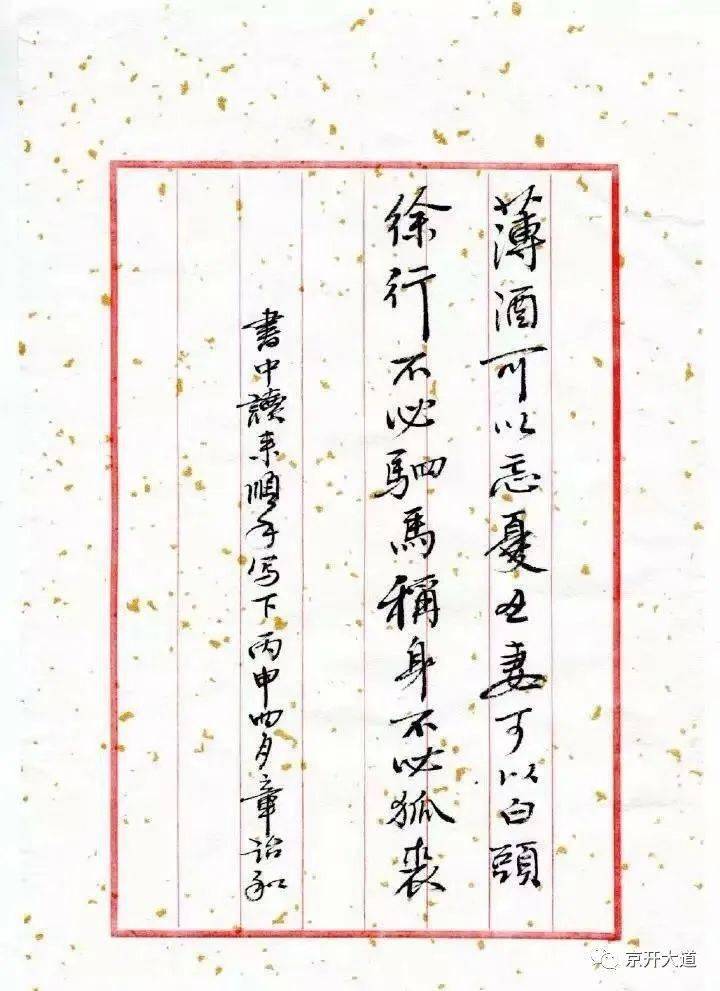 薄酒可以忘憂丑妻可以白頭
徐行不必駟馬稱身不必狐裘
書中讀来順手写下丙申四月章詒和
京开大道